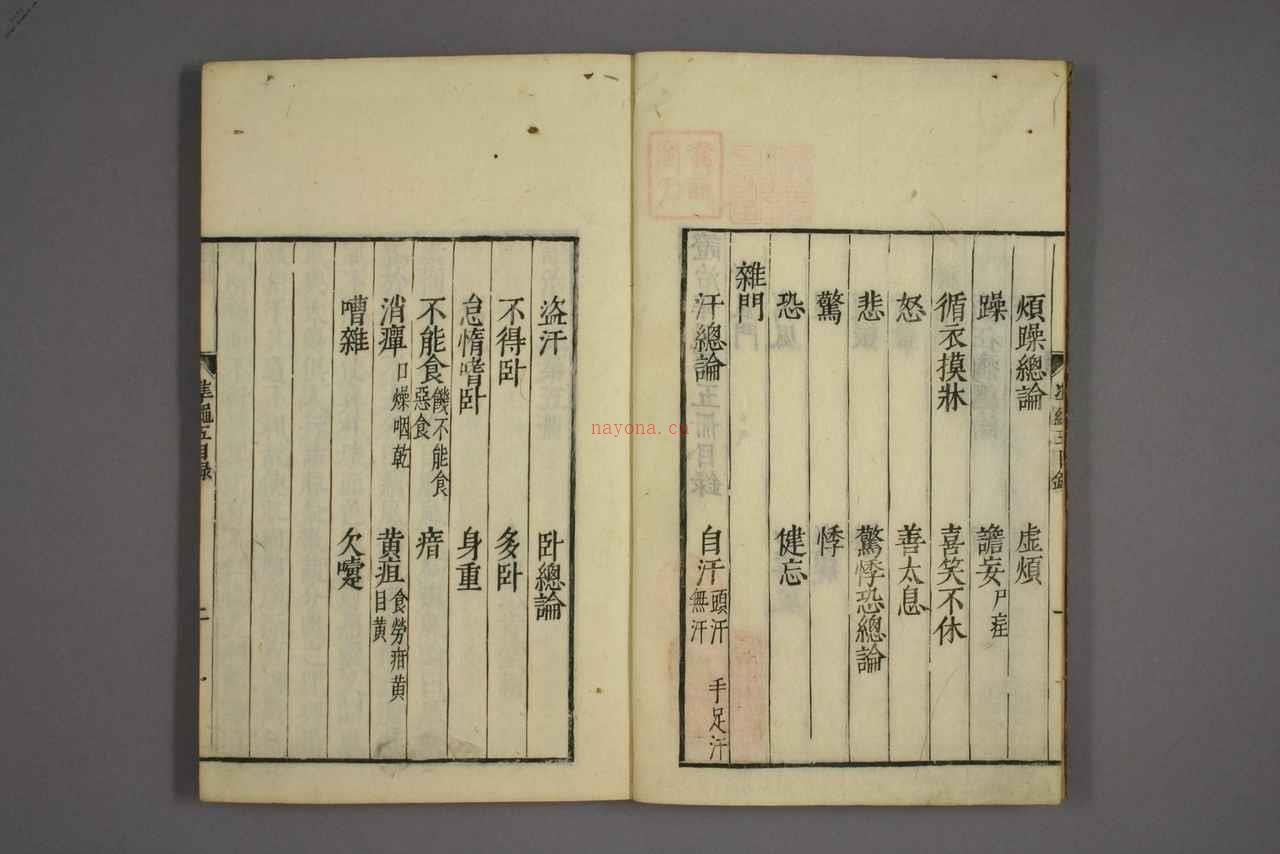 煩躁總論 虛煩
躁 譫妄 尸症
循衣摸牀 喜笑不休
怒 善太息
悲 驚悸恐總論
驚 悸
恐 健忘
雜門
汗總論 自汗 頭汗 手足汗 無汗
盜汗 卧總論
不得卧 多卧
怠惰嗜卧 身重
不能食 饑不能食 惡食 瘖
消癉 口燥咽乾 黄疸 食勞疳黄 目黄
嘈雜 欠嚏
準繩五目録
nayona.cn